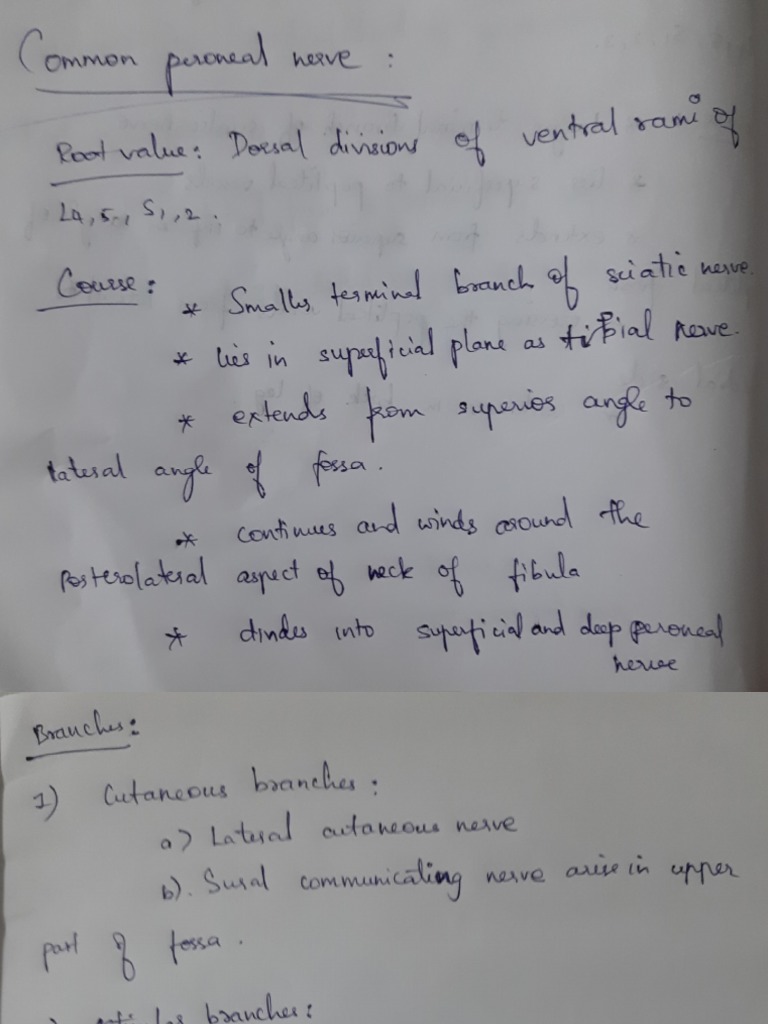 Common peroneal nerve :
Root value: Dorsal divisions of ventral rami of
L4, 5, S1, 2.
Course: * Smaller terminal branch of sciatic nerve.
* lies in superficial plane as tibial nerve.
* extends from superior angle to
lateral angle of fossa.
* continues and winds around the
Posterolateral aspect of neck of fibula
* divides into superficial and deep peroneal
nerve
Branches:
1) Cutaneous branches:
a) Lateral cutaneous nerve
b). Sural communicating nerve arise in upper
part of fossa.
branches: